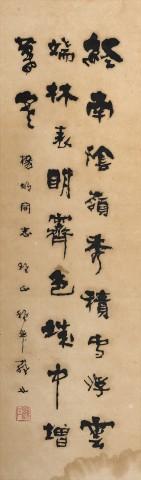 終南陰嶺秀積雪浮雲
端林表明霽色城中增
暮寒
同志
正